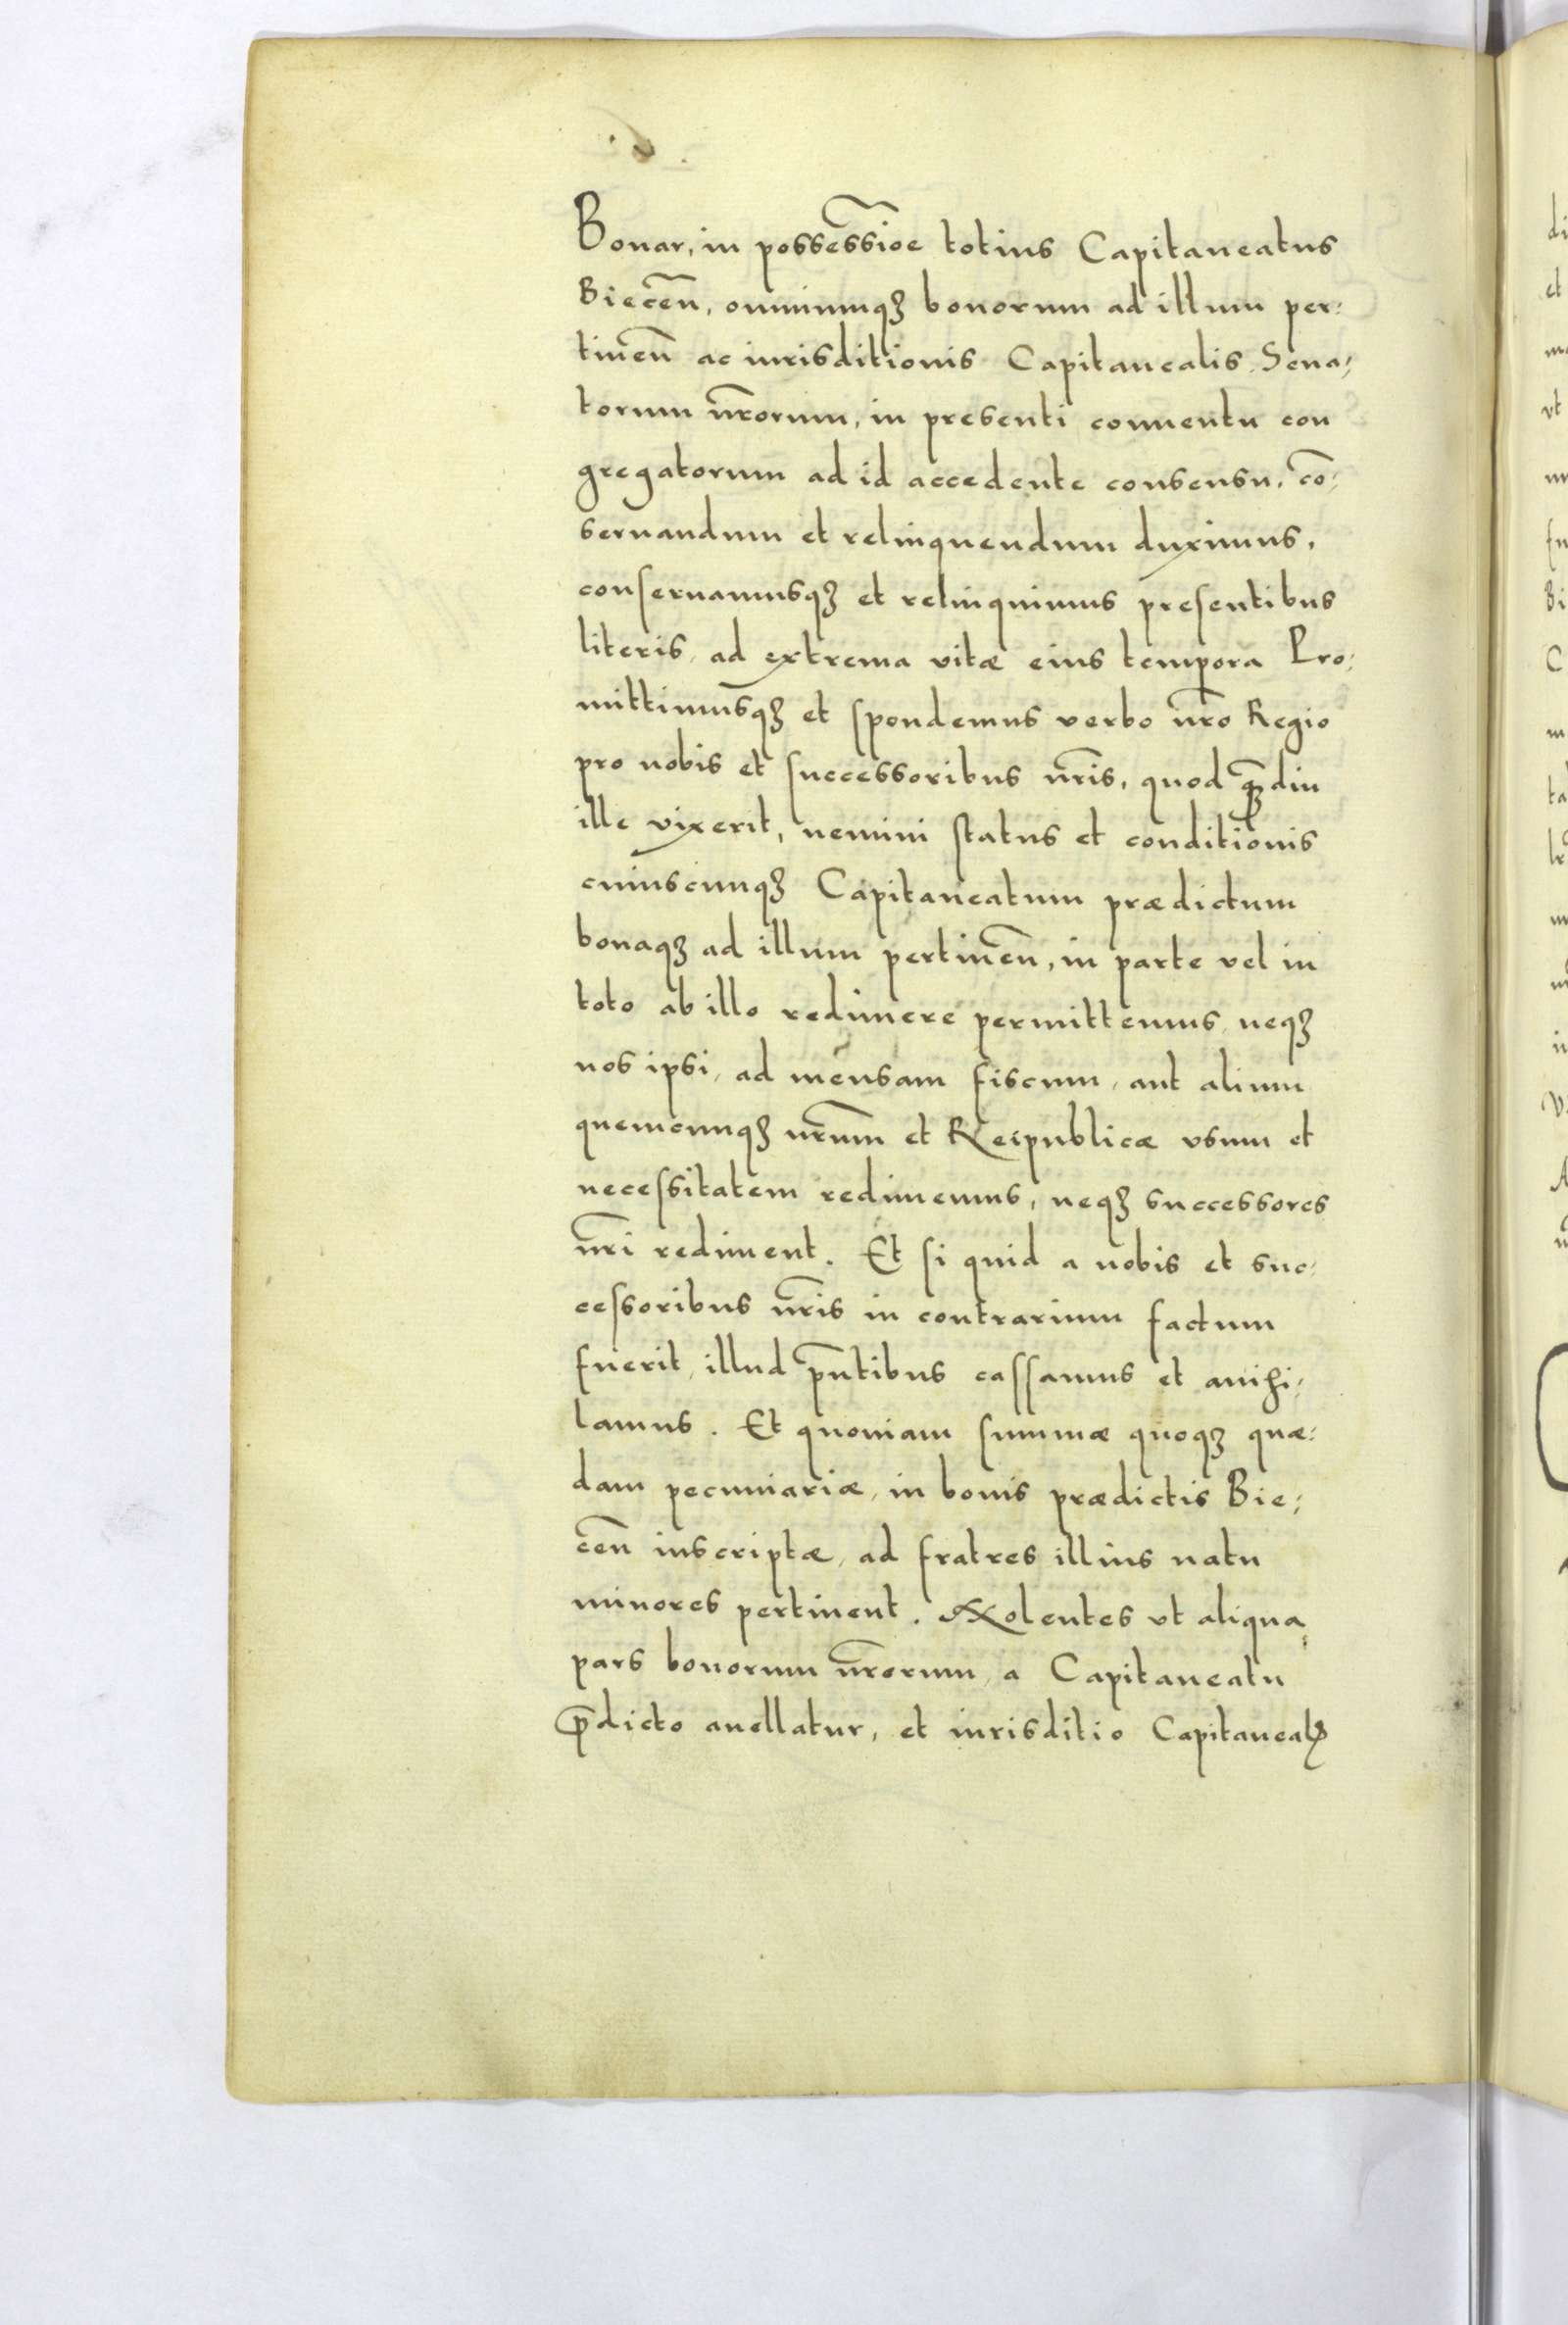 Bonar, in possessio͞e totius Capitaneatus
Biecen̄, omniumqꝫ bonorum ad illum per:
tinen̄ ac iurisditionis Capitanealis, Sena:
torum nr̄orum, in presenti conuentu con
gregatorum ad id accedente consensu, cō:
seruandum et relinquendum duximus,
conseruamusqꝫ et relinquimus presentibus
literis, ad extrema vitæ eius tempora Pro:
mittimusqꝫ et spondemus verbo nr̄o Regio
pro nobis et successoribus nr̄is, quod qꝫ̄diu
ille vixerit, nemini status et conditionis
cuiuscunqꝫ Capitaneatum prædictum
bonaqꝫ ad illum pertinen̄, in parte vel in
toto ab illo redimere permittemus, neqꝫ
nos ipsi, ad mensam fiscum, aut alium
quemcunqꝫ nr̄um et Reipublicæ vsum et
necessitatem redimemus, neqꝫ successores
nr̄i rediment. Et si quid a nobis et suc:
cessoribus nr̄is in contrarium factum
fuerit, illud pn̄tibus cassamus et anihi:
lamus. Et quoniam summæ quoqꝫ quæ:
dam pecuniariæ, in bonis prædictis Bie:
cen̄ inscriptæ, ad fratres illius natu
minores pertinent. Nolentes vt aliqua
pars bonorum nr̄orum, a Capitaneatu
p̄dicto auellatur, et iurisditio Capitanealꝭ
di
et
vt
Bi
C
ta